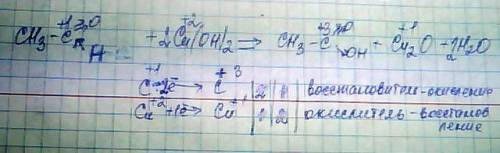 CH₃-C⁺¹=O H + 2Cu⁺²(OH)₂ ⇒ CH₃-C⁺³=O OH + Cu₂⁺¹O + 2H₂O
C⁺¹ -2ē → C⁺³ | 2 | 1 | восстановитель-окисление
Cu⁺² +1ē → Cu⁺¹ | 1 | 2 | окислитель-восстанов
ление